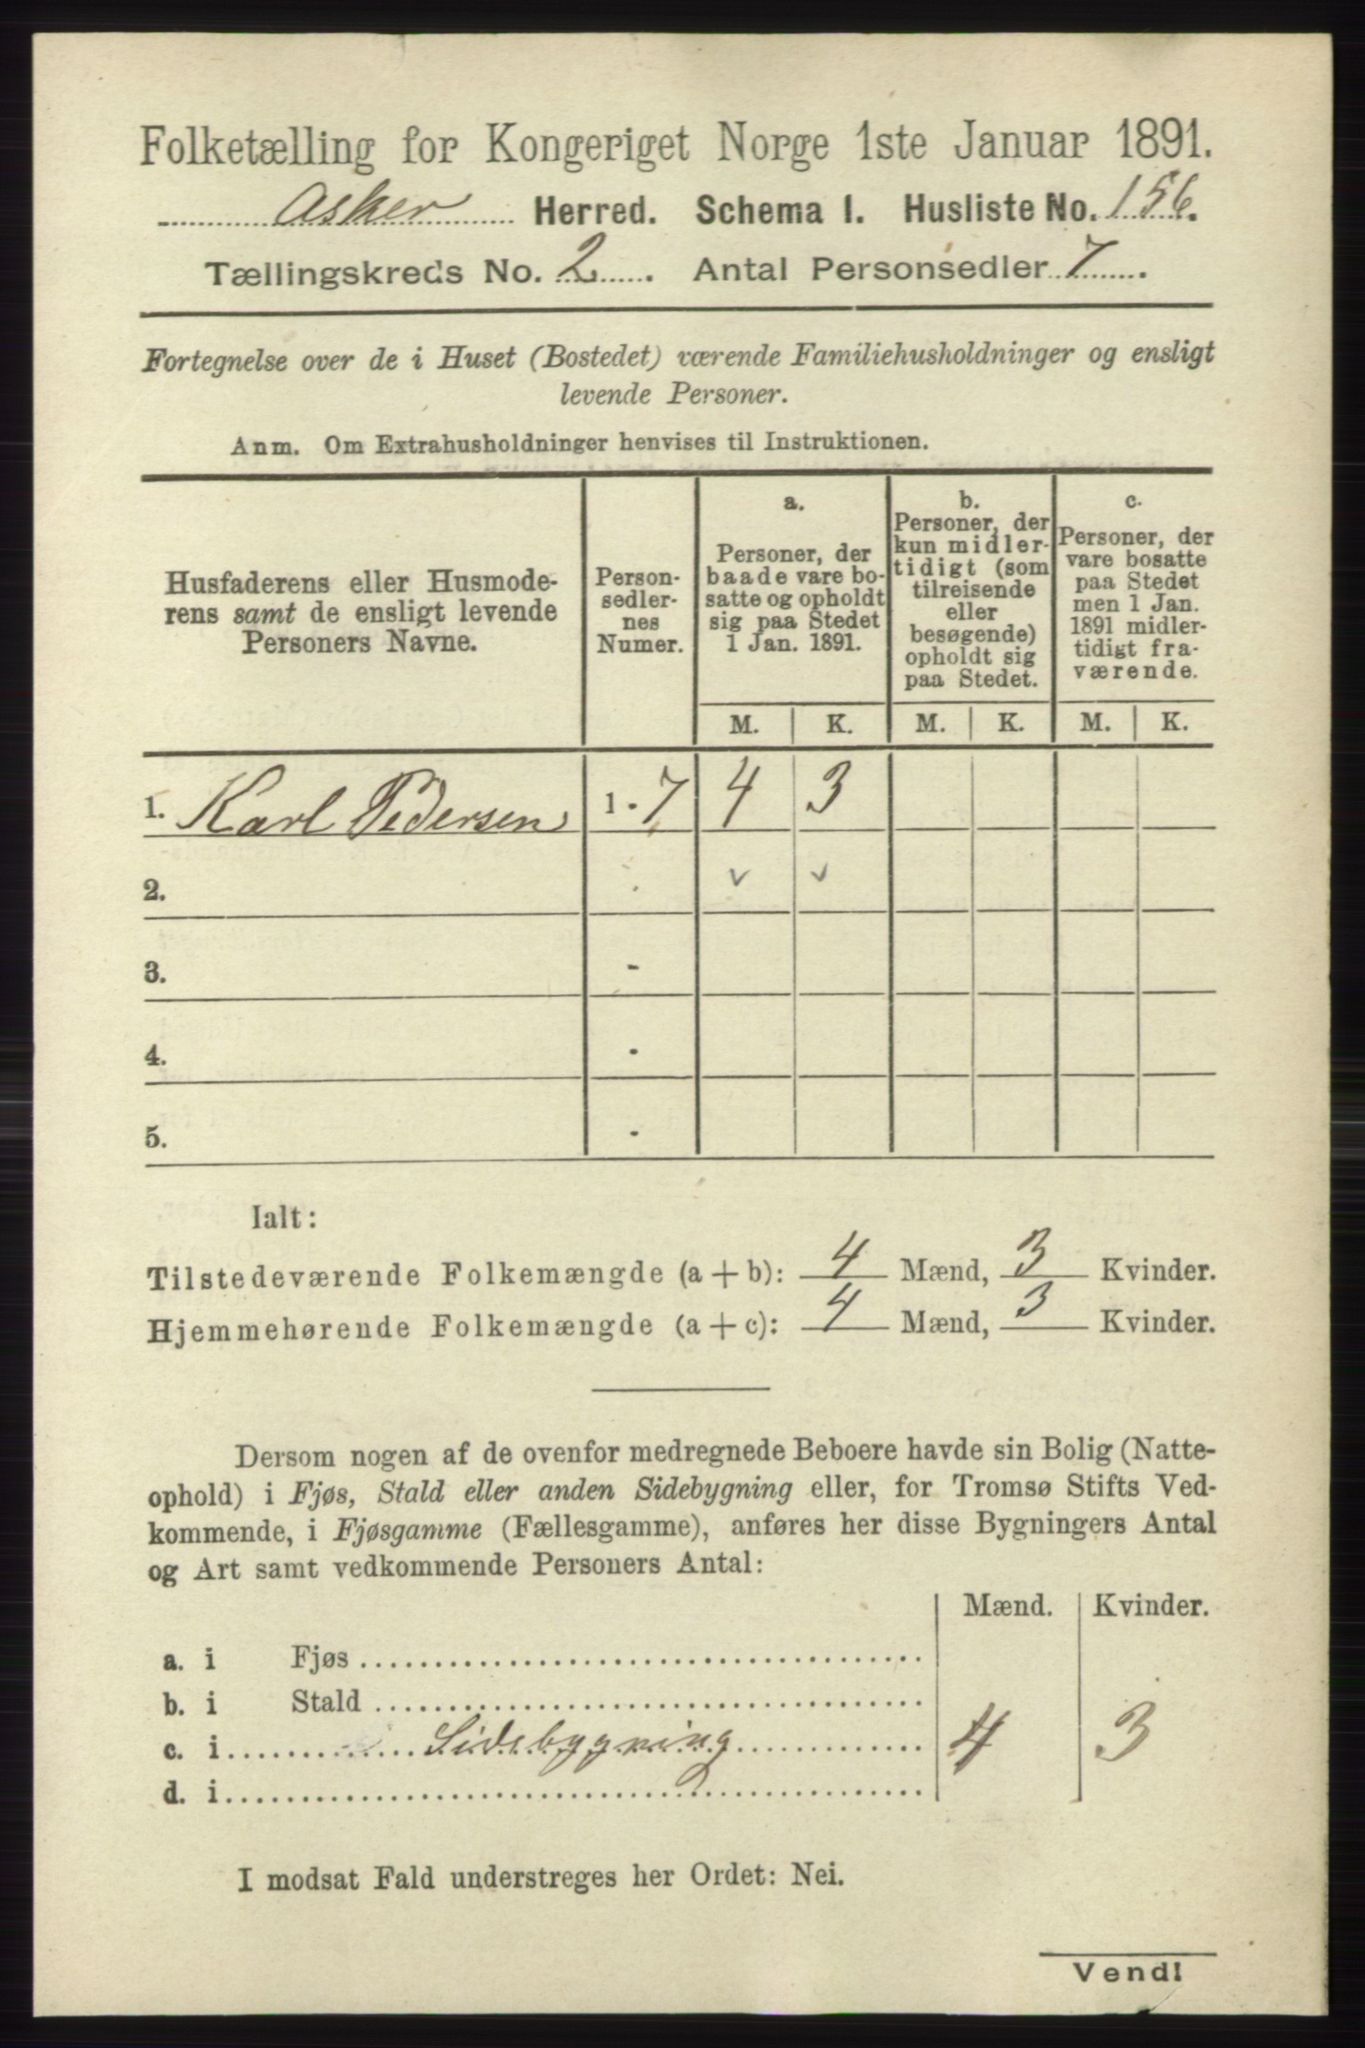 Folketælling for Kongeriget Norge 1ste Januar 1891.
Asker Herred. Schema I. Husliste No. 156.
Tællingskreds No. 2. Antal Personsedler 7.
Fortegnelse over de i Huset (Bostedet) værende Familiehusholdninger og ensligt
levende Personer.
Anm. Om Extrahusholdninger henvises til Instruktionen.
Husfaderens eller Husmode-
rens samt de ensligt levende
Personers Navne.
Person-
sedler-
nes
Numer.
a.
Personer, der
baade vare bo-
satte og opholdt
sig paa Stedet
1 Jan. 1891.
b.
Personer, der
kun midler-
tidigt (som
tilreisende
eller
besøgende)
opholdt sig
paa Stedet.
c.
Personer, der
vare bosatte
paa Stedet
men 1 Jan.
1891 midler-
tidigt fra-
værende.
M. K. M. K. M. K.
1. Karl Pedersen 1 - 7 4 3
2.
3. -
4. -
5. -
Ialt:
Tilstedeværende Folkemængde (a + b): 4 Mænd, 3 Kvinder.
Hjemmehørende Folkemængde (a + c): 4 Mænd, 3 Kvinder.
Dersom nogen af de ovenfor medregnede Beboere havde sin Bolig (Natte-
ophold) i Fjøs, Stald eller anden Sidebygning eller, for Tromsø Stifts Ved-
kommende, i Fjøsgamme (Fællesgamme), anføres her disse Bygningers Antal
og Art samt vedkommende Personers Antal:
Mænd. Kvinder.
a. i Fjøs
b. i Stald
c. i Sidebygning 4 3
d. i
I modsat Fald understreges her Ordet: Nei.
Vend!